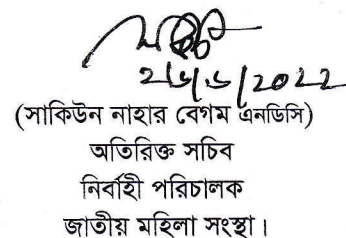 (সাকিউন নাহার বেগম এনডিসি)
অতিরিক্ত সচিব
নির্বাহী পরিচালক
জাতীয় মহিলা সংস্থা।